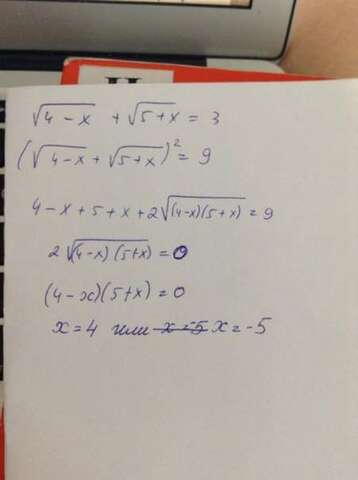 √(4-x) + √(5+x) = 3
(√(4-x) + √(5+x))² = 9
4-x+5+x+2√((4-x)(5+x)) = 9
2√((4-x)(5+x)) = 0
(4-x)(5+x) = 0
x=4 или x=-5 x=-5